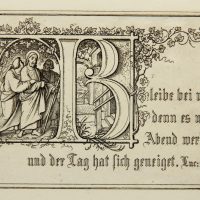 Bleibe bei
denn es
Abend wer
und der Tag hat sich geneiget. Luc: